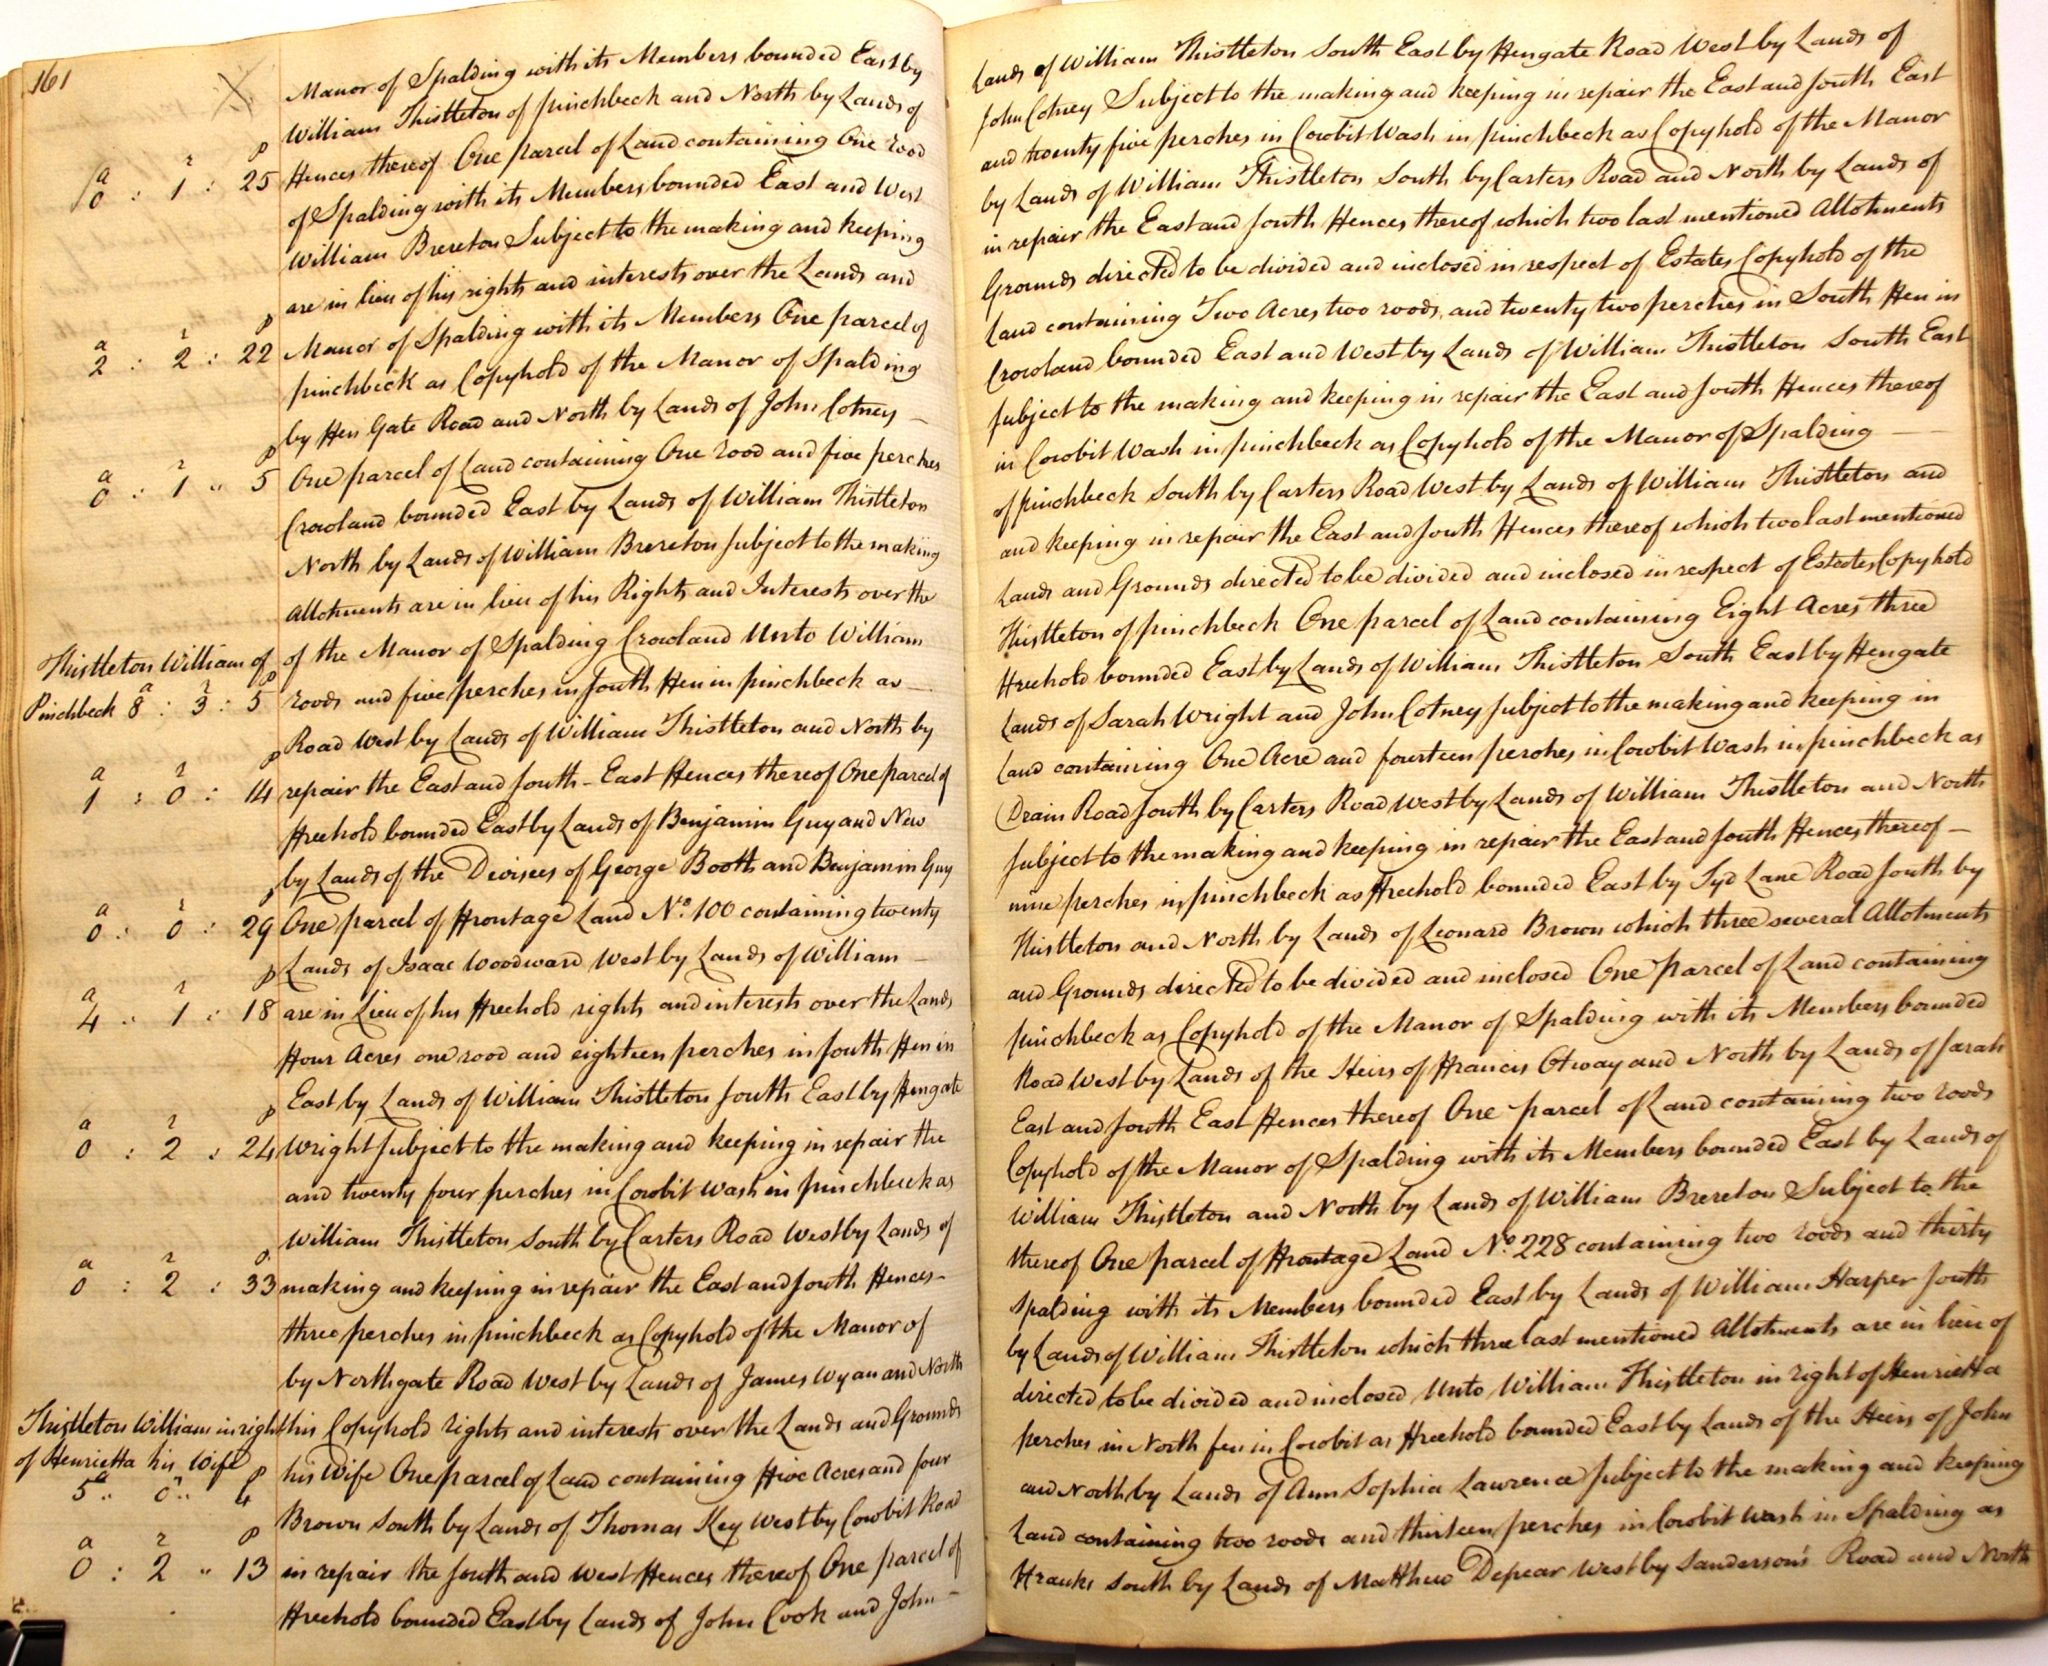 161
Manor of Spalding with its Members bounded East by Lands of William Thistleton South East by Fengate Road West by Lands of
William Thistleton of pinchbeck and North by Lands of John Cotney Subject to the making and keeping in repair the East and South East
a r p
0 : 1 : 25 Fences thereof One parcel of Land containing One rood and twenty five perches in Cowbit Wash in pinchbeck as Copyhold of the Manor
of Spalding with its Members bounded East and West by Lands of William Thistleton South by Carters Road and North by Lands of
William Brereton Subject to the making and keeping in repair the East and South Fences thereof which two last mentioned Allotments
are in lieu of his rights and interests over the Lands and Grounds directed to be divided and inclosed in respect of Estates Copyhold of the
a r p
2 : 2 : 22 Manor of Spalding with its Members One parcel of Land containing Two Acres two roods and twenty two perches in South Fen in
pinchbeck as Copyhold of the Manor of Spalding Crowland bounded East and West by Lands of William Thistleton South East
by Fen Gate Road and North by Lands of John Cotney – Subject to the making and keeping in repair the East and South Fences thereof
a r p
0 : 1 " 5 One parcel of Land containing One rood and five perches in Cowbit Wash in pinchbeck as Copyhold of the Manor of Spalding –
Crowland bounded East by Lands of William Thistleton of pinchbeck South by Carters Road West by Lands of William Thistleton and
North by Lands of William Brereton Subject to the making and keeping in repair the East and South Fences thereof which two last mentioned
Allotments are in lieu of his Rights and Interests over the Lands and Grounds directed to be divided and inclosed in respect of Estates Copyhold
Thistleton William of of the Manor of Spalding Crowland Unto William Thistleton of pinchbeck One parcel of Land containing Eight Acres three
a r p
Pinchbeck 8 : 3 : 5 roods and five perches in South Fen in pinchbeck as – Freehold bounded East by Lands of William Thistleton South East by Fengate
Road West by Lands of William Thistleton and North by Lands of Sarah Wright and John Cotney Subject to the making and keeping in
a r p
1 : 0 : 14 repair the East and South – East Fences thereof One parcel of Land containing One Acre and fourteen perches in Cowbit Wash in pinchbeck as
Freehold bounded East by Lands of Benjamin Guy and New Drain Road South by Carters Road West by Lands of William Thistleton and North
by Lands of the Devisees of George Booth and Benjamin Guy Subject to the making and keeping in repair the East and South Fences thereof –
a r p
0 : 0 : 29 One parcel of Frontage Land No. 100 containing twenty nine perches in pinchbeck as Freehold bounded East by Tyd Lane Road South by
Lands of Isaac Woodward West by Lands of William – Thistleton and North by Lands of Leonard Brown which three several Allotments
a r p
4 : 1 : 18 are in Lieu of his Freehold rights and interests over the Lands and Grounds directed to be divided and inclosed One parcel of Land containing
Four Acres one rood and eighteen perches in South Fen in pinchbeck as Copyhold of the Manor of Spalding with its Members bounded
East by Lands of William Thistleton South East by Fengate Road West by Lands of the Heirs of Francis Otway and North by Lands of Sarah
a r p
0 : 2 : 24 Wright Subject to the making and keeping in repair the East and South East Fences thereof One parcel of Land containing two roods
and twenty four perches in Cowbit Wash in pinchbeck as Copyhold of the Manor of Spalding with its Members bounded East by Lands of
William Thistleton South by Carters Road West by Lands of William Thistleton and North by Lands of William Brereton Subject to the
a r p
0 : 2 : 33 making and keeping in repair the East and South Fences – thereof One parcel of Frontage Land No. 228 containing two roods and thirty
three perches in pinchbeck as Copyhold of the Manor of Spalding with its Members bounded East by Lands of William Harper South
by Northgate Road West by Lands of James Wyan and North by Lands of William Thistleton which three last mentioned Allotments are in lieu of
Thistleton William in right his Copyhold rights and interests over the Lands and Grounds directed to be divided and inclosed Unto William Thistleton in right of Henrietta
of Henrietta his Wife his Wife One parcel of Land containing Five Acres and four perches in North fen in Cowbit as Freehold bounded East by Lands of the Heirs of John
a r p
5 " 0 " 4 Brown South by Lands of Thomas Key West by Cowbit Road and North by Lands of Ann Sophia Lawrence Subject to the making and keeping
a r p
0 : 2 " 13 in repair the South and West Fences thereof One parcel of Land containing two roods and thirteen perches in Cowbit Wash in Spalding as
Freehold bounded East by Lands of John Cook and John – Franks South by Lands of Matthew Depear West by Sanderson's Road and North